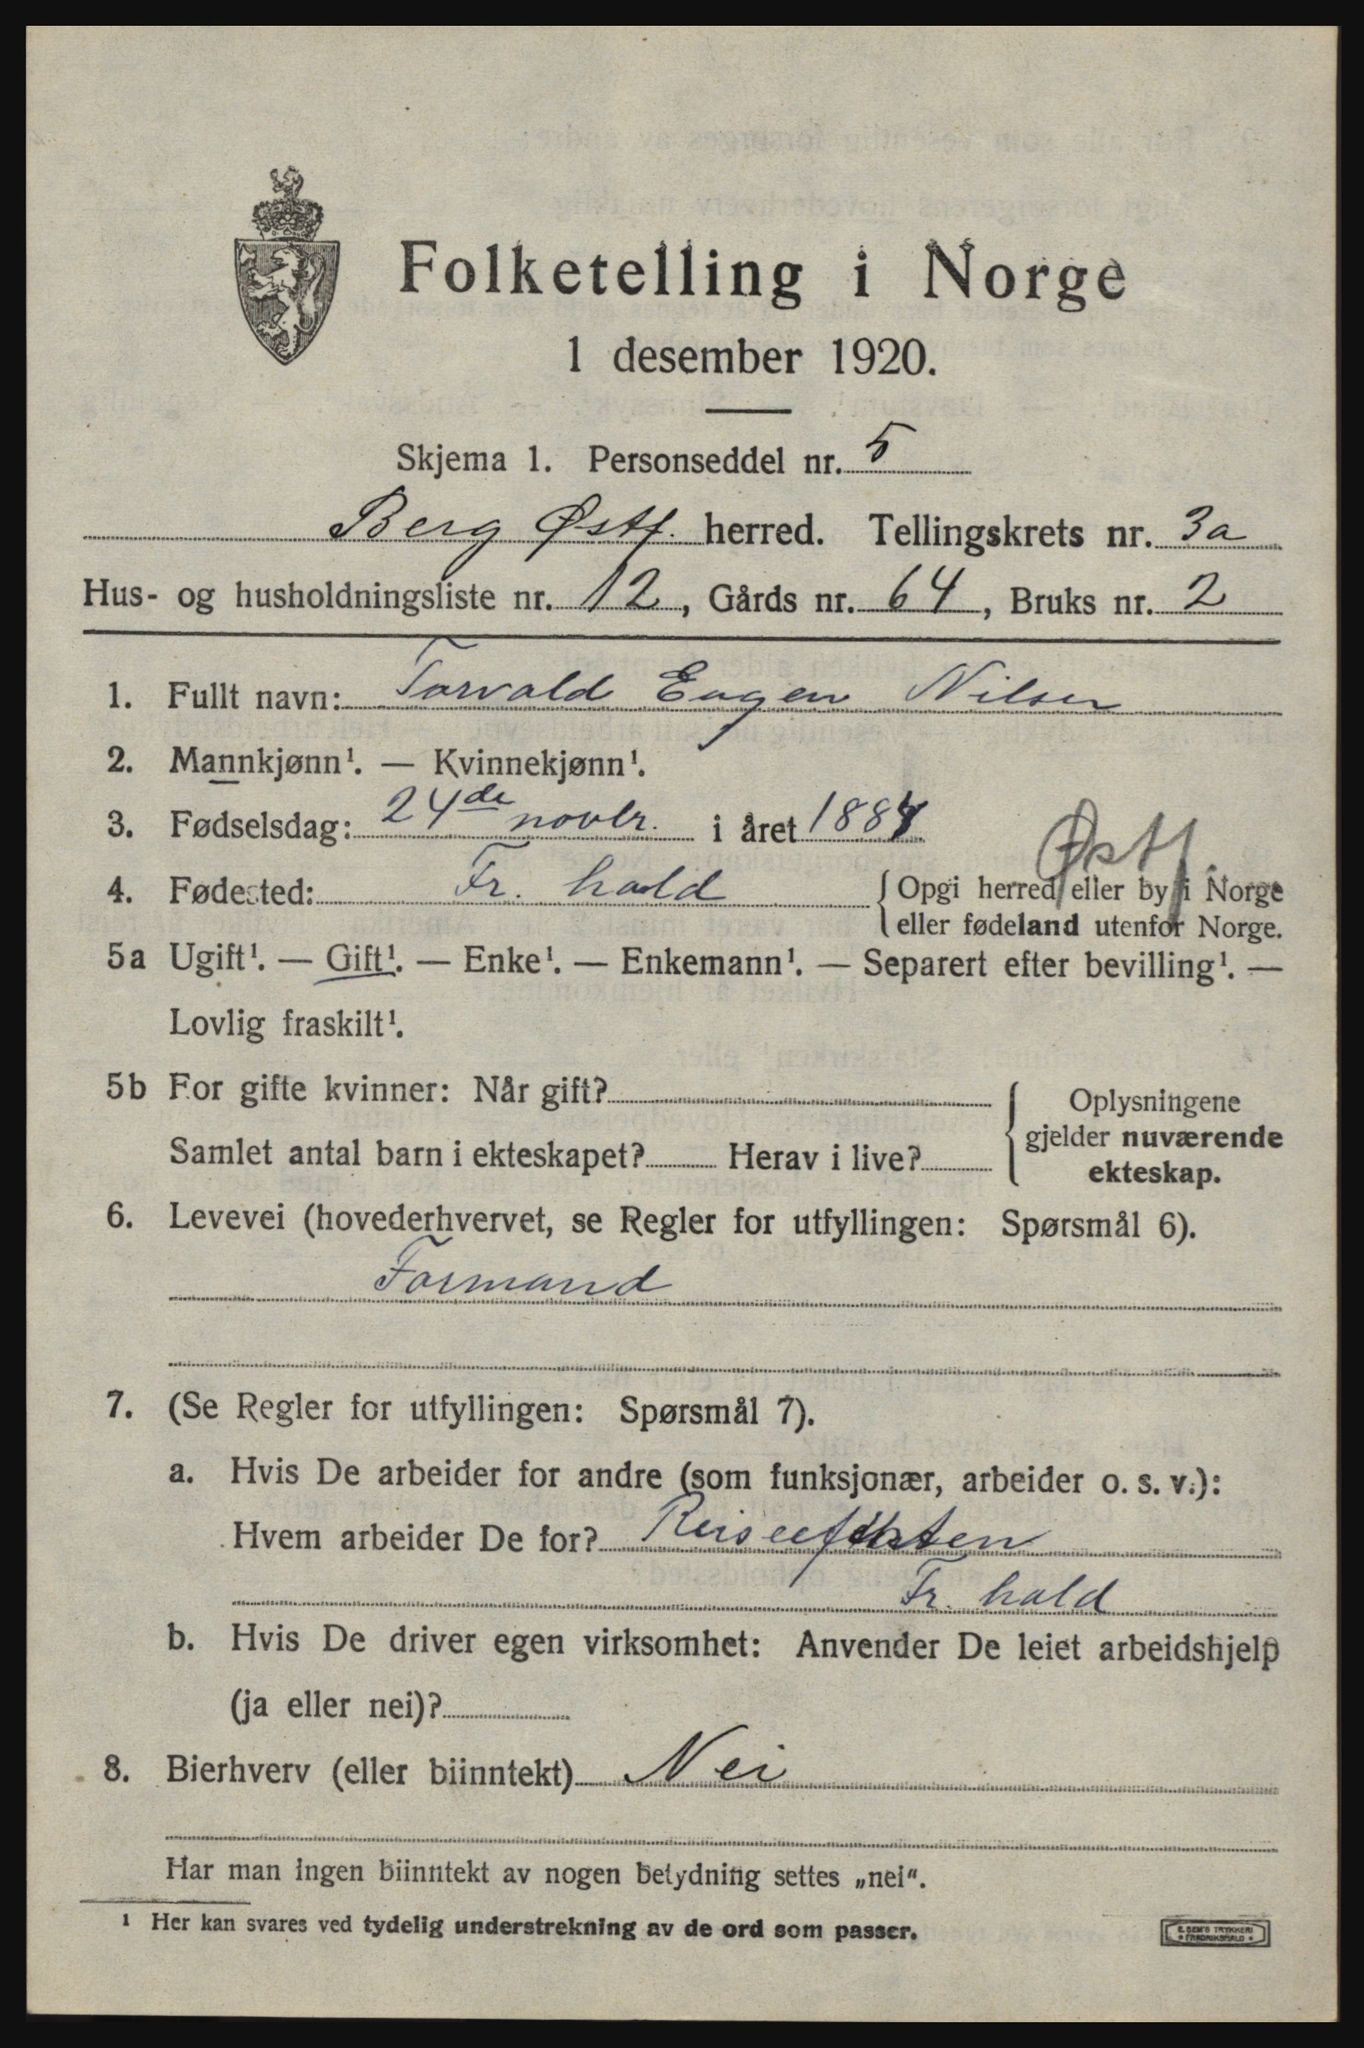 Folketelling i Norge
1 desember 1920.
Skjema 1. Personseddel nr. 5
Berg Østf. herred. Tellingskrets nr. 3a
Hus- og husholdningsliste nr. 12, Gårds nr. 64, Bruks nr. 2
1. Fullt navn: Torvald Eugen Nilsen
2. Mannkjønn¹. — Kvinnekjønn¹.
3. Fødselsdag: 24de novbr. i året 1884
Østf.
4. Fødested: Fr. hald { Opgi herred eller by i Norge
eller fødeland utenfor Norge.
5a Ugift¹. — Gift¹. — Enke¹. — Enkemann¹. — Separert efter bevilling¹. —
Lovlig fraskilt¹.
5b For gifte kvinner: Når gift?
Samlet antal barn i ekteskapet? Herav i live?
{ Oplysningene
gjelder nuværende
ekteskap.
6. Levevei (hovederhvervet, se Regler for utfyllingen: Spørsmål 6).
Formand
7. (Se Regler for utfyllingen: Spørsmål 7).
a. Hvis De arbeider for andre (som funksjonær, arbeider o. s. v.):
Hvem arbeider De for?
Fr. hald
b. Hvis De driver egen virksomhet: Anvender De leiet arbeidshjelp
(ja eller nei)?
8. Bierhverv (eller biinntekt) Nei
Har man ingen biinntekt av nogen betydning settes „nei“.
¹ Her kan svares ved tydelig understrekning av de ord som passer.
E. SEM'S TRYKKERI
FREDRIKSHALD